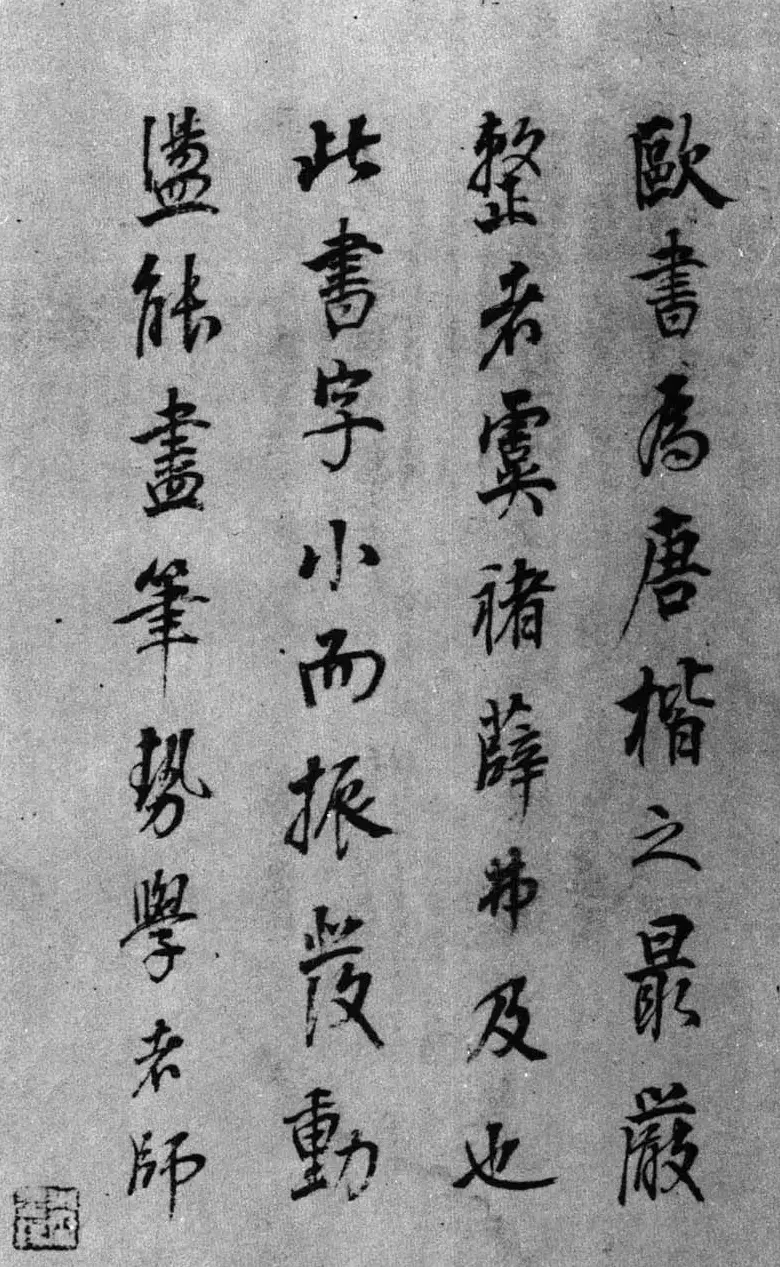 歐書為唐楷之最嚴
整者虞褚薛弗及也
此書字小而振發動
盪能盡筆勢學者師